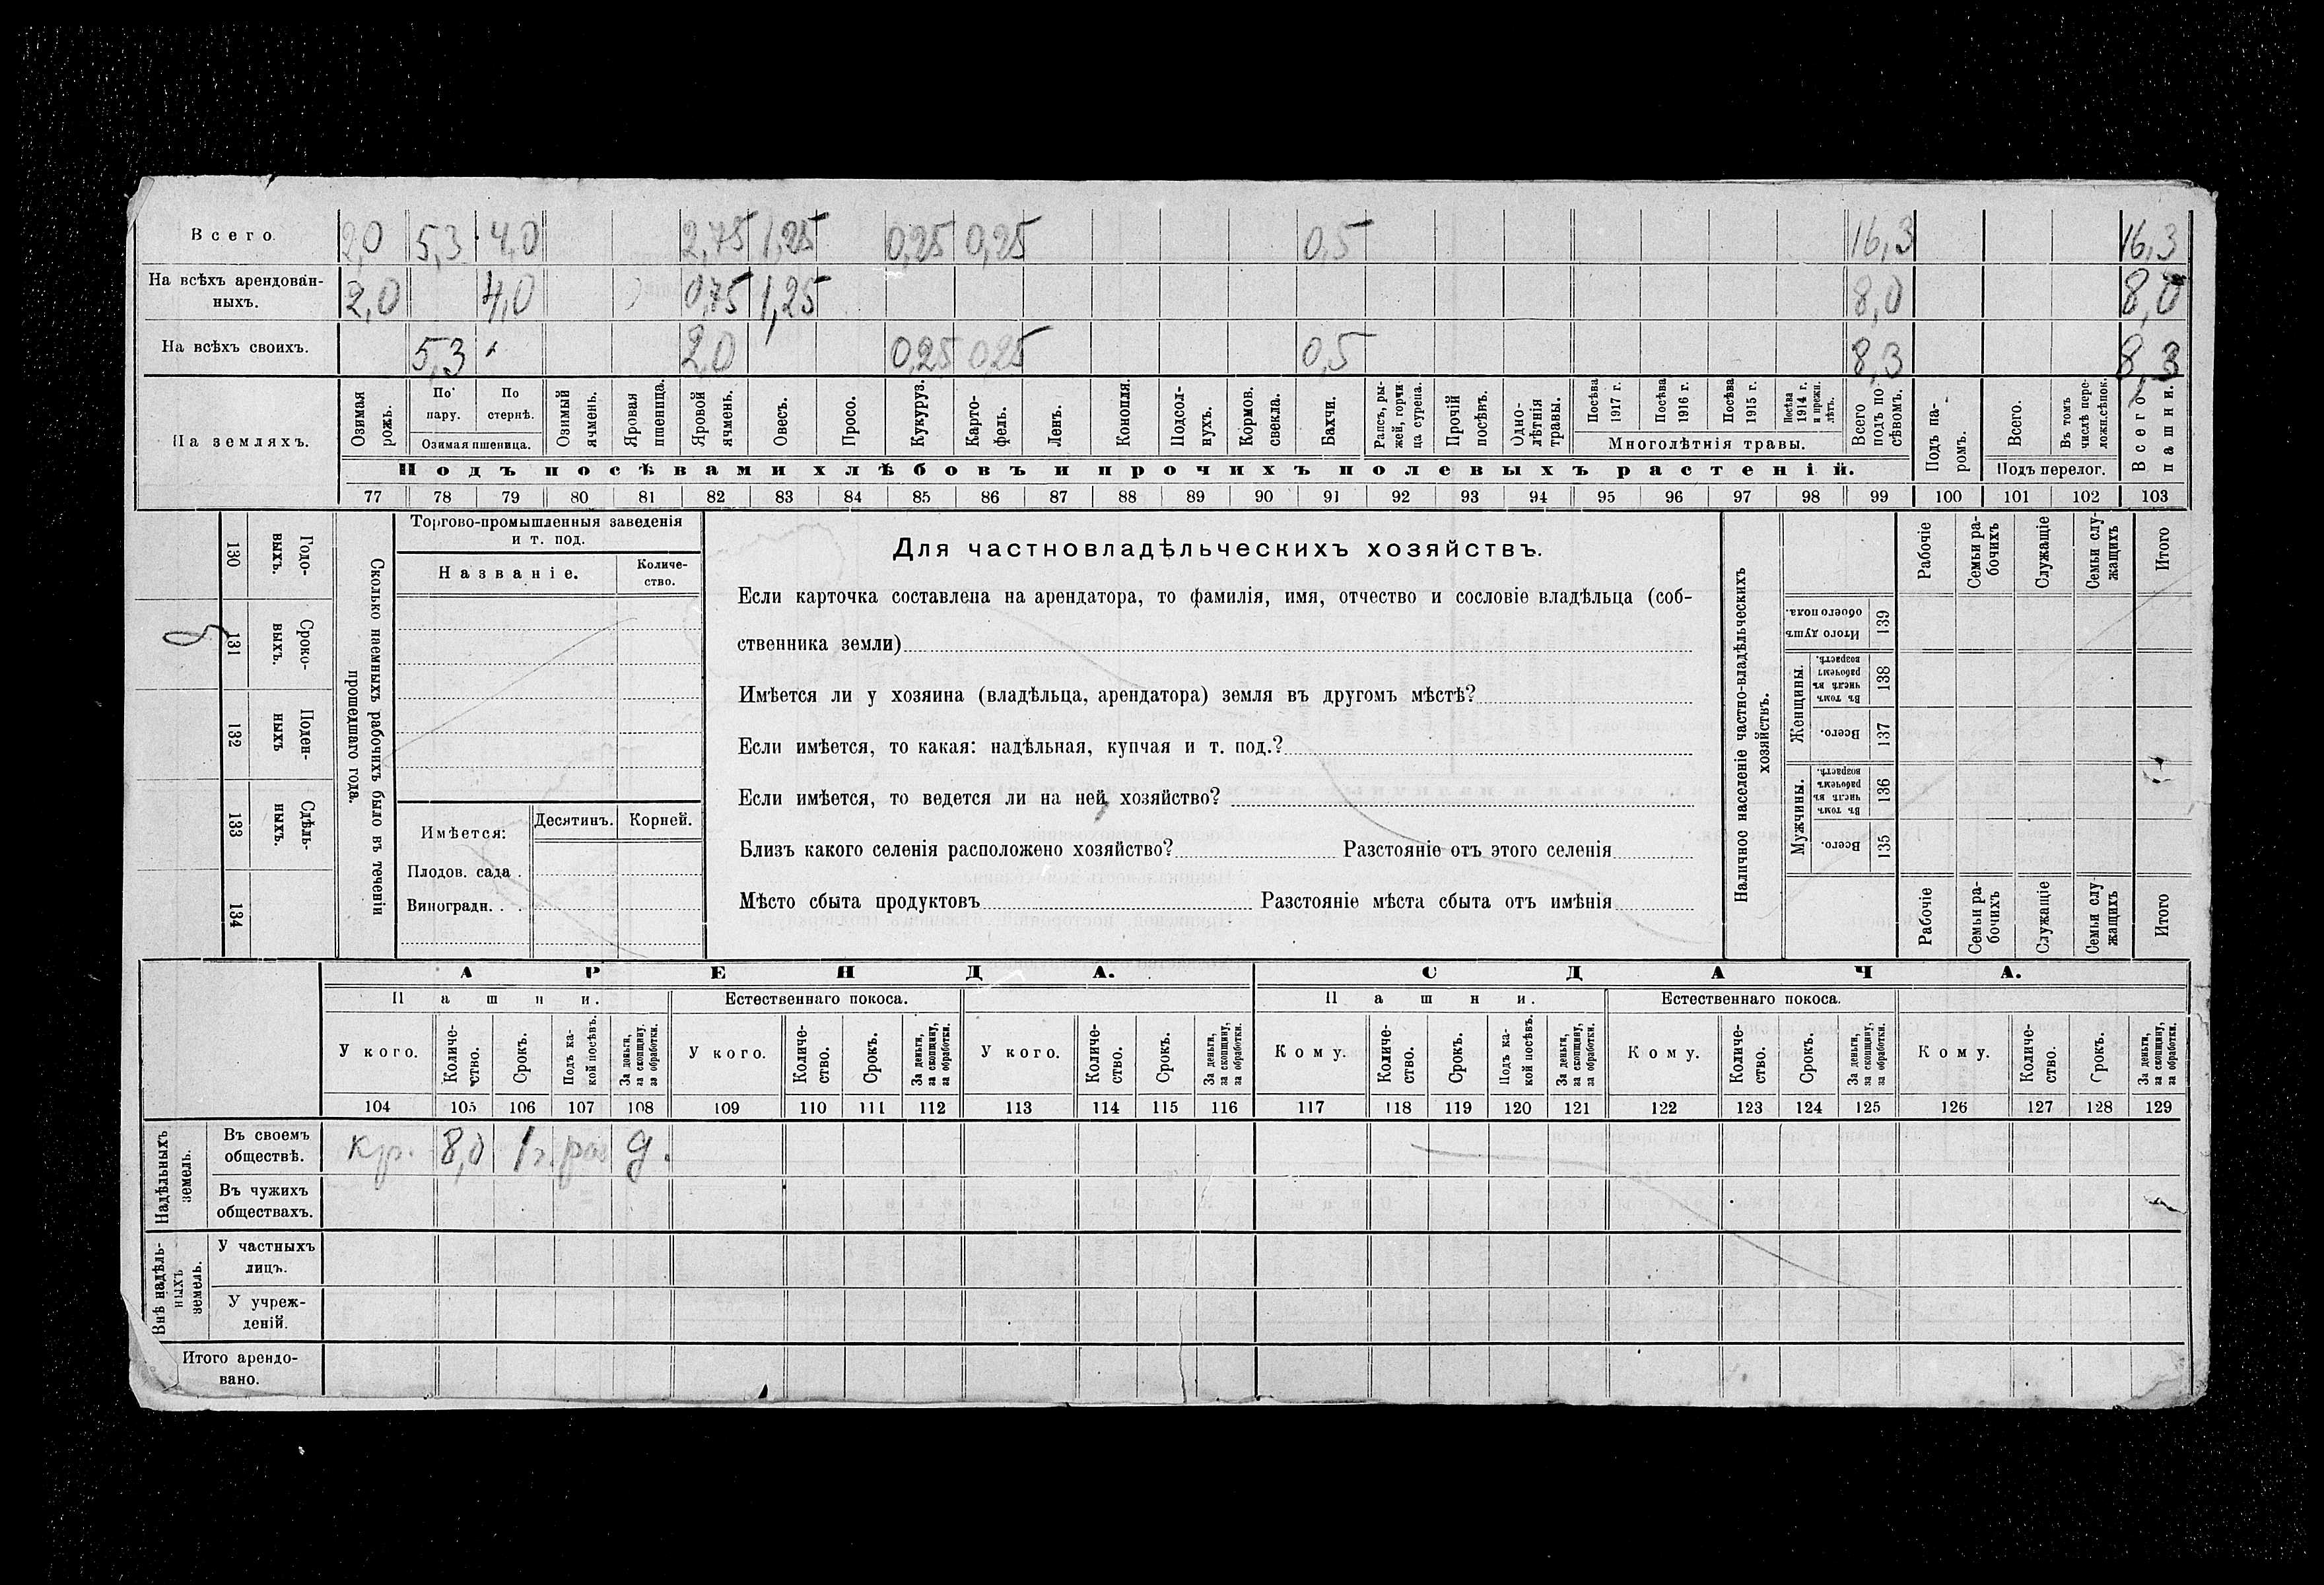 Всего. 2,0 5,3 4,0 2,75 1,25 0,25 0,25 0,5 16,3 16,3
На всѣхъ арендован-
ныхъ. 2,0 4,0 0,75 1,25 8,0 8,0
На всѣхъ своихъ. 5,3 2,0 0,25 0,25 0,5 8,3 8,3
На земляхъ.
Озимая рожь.
По пару.
По стернѣ.
Озимая пшеница.
Озимый ячмень.
Яровая пшеница.
Яровой ячмень.
Овесъ.
Просо.
Кукуруз.
Карто-
фель.
Ленъ.
Конопля.
Подсол-
нухъ.
Кормов. свекла.
Бахчи.
Рапсъ, ры-
жей, горчи
ца сурепа.
Прочій посѣвъ.
Одно-
лѣтнія
травы.
Посѣва 1917 г.
Посѣва 1916 г.
Посѣва 1915 г.
Посѣва 1914 г. и прежн. лѣтъ.
Многолѣтнія травы.
Всего подъ по
сѣвомъ.
Подъ па-
ромъ.
Всего.
Въ томъ числѣ пере-
ложн.сѣнок.
Подъ перелог.
Всего пашни.
Подъ посѣвами хлѣбовъ и прочихъ полевыхъ растеній.
77 78 79 80 81 82 83 84 85 86 87 88 89 90 91 92 93 94 95 96 97 98 99 100 101 102 103
130 Годо-
выхъ.
131 Сроко-
выхъ.
132 Поден-
ныхъ
133 Сдѣль-
ныхъ.
134
Сколько наемныхъ рабочихъ было въ теченіи
прошедшаго года.
Торгово-промышленныя заведенія
и т. под.
Названіе.
Количе-
ство.
Имѣется:
Десятинъ. Корней.
Плодов. сада .
Виноградн. . .
Для частновладѣльческихъ хозяйствъ.
Если карточка составлена на арендатора, то фамилія, имя, отчество и сословіе владѣльца (соб-
ственника земли)
Имѣется ли у хозяина (владѣльца, арендатора) земля въ другомъ мѣстѣ?
Если имѣется, то какая: надѣльная, купчая и т. под.?
Если имѣется, то ведется ли на ней хозяйство?
Близъ какого селенія расположено хозяйство? Разстояніе отъ этого селенія
Мѣсто сбыта продуктовъ Разстояніе мѣста сбыта отъ имѣнія
Наличное населеніе частно-владѣльческихъ
хозяйствъ.
Рабочіе
Семьи ра-
бочихъ
Служащіе
Семьи слу-
жащихъ
Итого
Итого душъ
обоего пола. 139
Женщины.
Въ томъ числѣ въ рабочемъ возрастѣ. 138
Всего. 137
Мужчины.
Въ томъ числѣ въ рабочемъ возрастѣ. 136
Всего. 135
Рабочіе
Семьи ра-
бочихъ
Служащіе
Семьи слу-
жащихъ
Итого
АРЕНДА. СДАЧА.
Пашни. Естественнаго покоса. Пашни. Естественнаго покоса.
У кого.
Количе-
ство.
Срокъ.
Подъ ка-
кой посѣвъ.
За деньги,
за скопщину,
за обработки.
У кого.
Количе-
ство.
Срокъ.
За деньги,
за скопщину,
за обработки.
У кого.
Количе-
ство.
Срокъ.
За деньги,
за скопщину,
за обработки.
Кому.
Количе-
ство.
Срокъ.
Подъ ка-
кой посѣвъ.
За деньги,
за скопщину,
за обработки.
Кому.
Количе-
ство.
Срокъ.
За деньги,
за скопщину,
за обработки.
Кому.
Количе-
ство.
Срокъ.
За деньги,
за скопщину,
за обработки.
104 105 106 107 108 109 110 111 112 113 114 115 116 117 118 119 120 121 122 123 124 125 126 127 128 129
Надѣльныхъ
земель.
Въ своемъ
обществѣ. кр. 8,0 1 г. д.
Въ чужихъ
обществахъ.
Внѣ надѣль-
ныхъ
земель.
У частныхъ
лицъ.
У учреж-
деній.
Итого арендо-
вано.